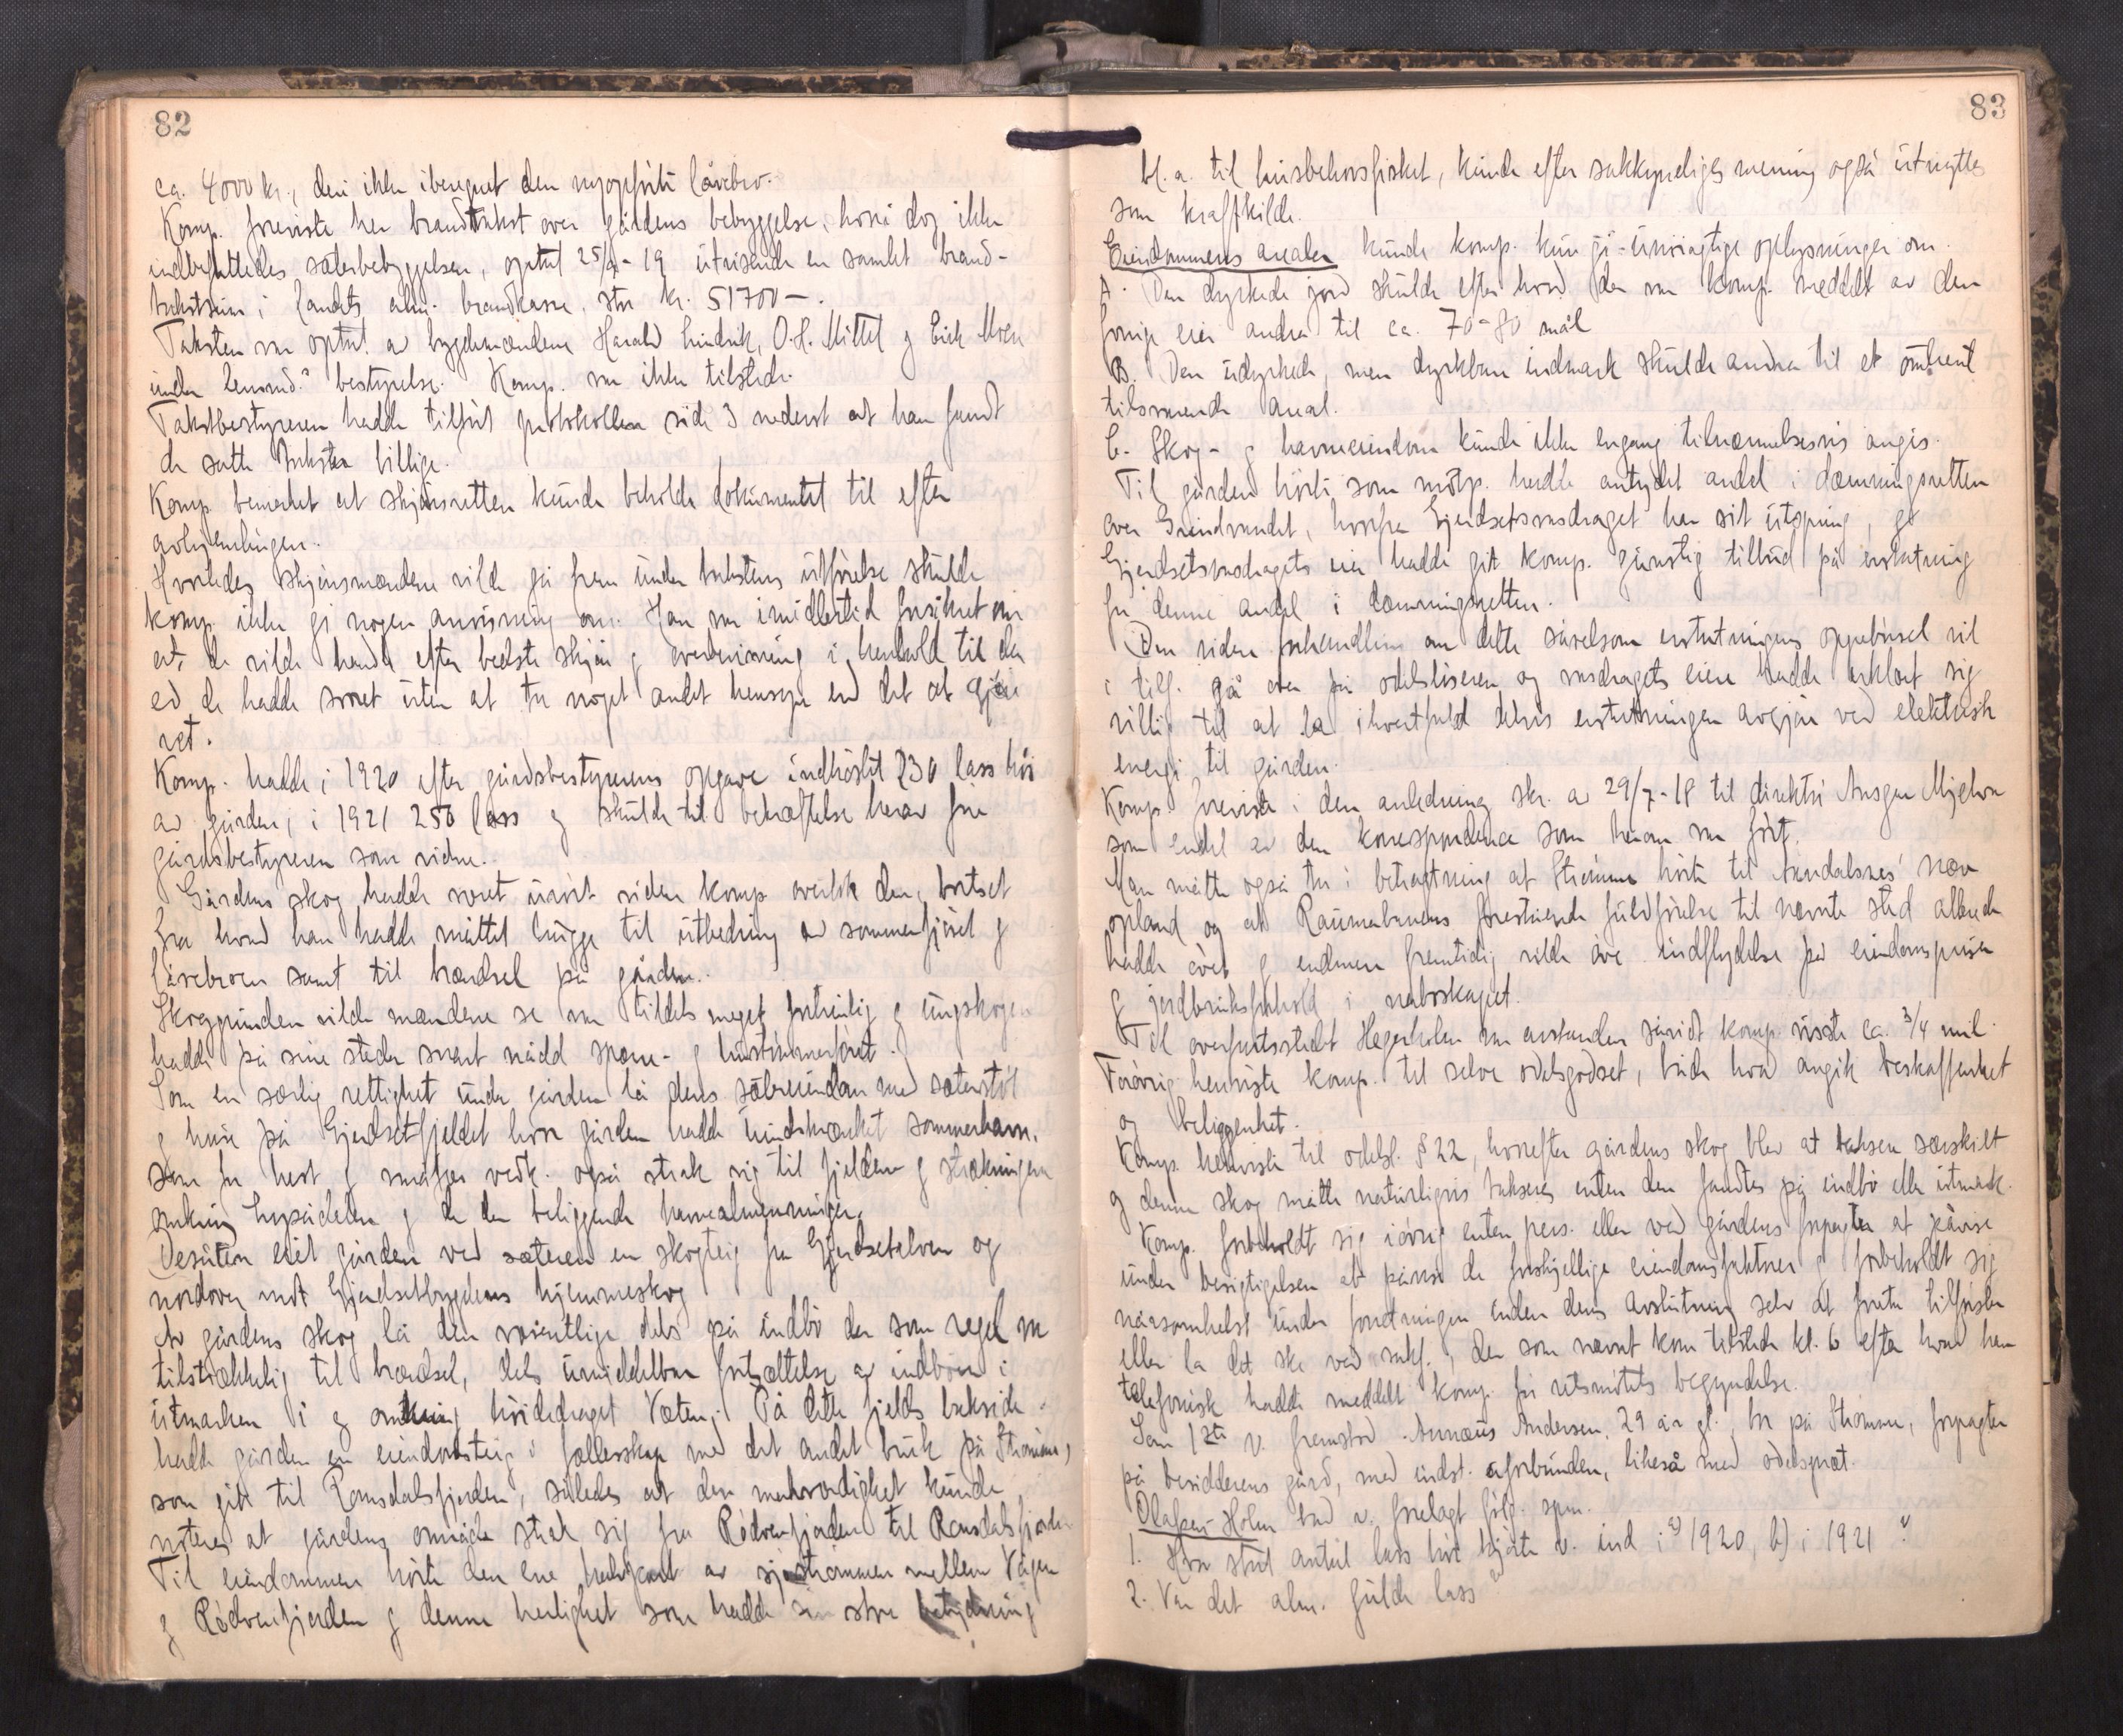 82
ca. 4000 kr., deri ikke iberegnet den nyopförte låvebro.
Komp. foreviste her brandtakst over gårdens bebyggelse, hvori dog ikke
indbefattedes sæterbebyggelsen, optat 25/9-19 utvisende en samlet brand-
takstsum i Landets alm. brandkasse, stor kr. 51700-.
Taksten var optat av bygdemændene Harald O.H. Mittet g Erik Moen
under lensmd.s bestyrelse. Komp. var ikke tilstede.
Takstbestyreren hadde tilfört protokollen side 3 nederst at han fandt
de satte takster billige.
Komp. bemerket at skjönsretten kunde beholde dokumentet til efter
avhjemlingen.
Hvorledes skjönsmændene vilde gå frem under takstens utförelse skulde
komp. ikke gi nogen anvisning om. Han var imidlertid forsikret om
at de vilde handle efter bedste skjön g overbevisning i henhold til den
ed de hadde svoret uten at ta noget andet hensyn end det at gjöre
ret.
Komp. hadde i 1920 efter gårdsbestyrerens opgave indhöstet 230 lass höi
av gården, i 1921 250 lass g skulde til bekræftelse herav före
gårdsbestyreren som vidne.
Gårdens skog hadde været urört siden komp overtok den, bortset
fra hvad han hadde måttet hugge til utbedring av sommerfjöset g
låvebroen samt til brændsel på gården.
Skoggrunden vilde mændene se var tildels meget fortrinlig g ungskogen
hadde på sine steder snart nådd sperre- g hustömmerföret.
Som en særlig rettighet under gården lå dens sætereiendom med sæterstöl
g huse på Gjerdsetfjeldet hvor gården hadde uindskrænket sommerhavn,
som for hest g småfæs vedk. også strak sig til fjelden g strækningen
omkring g de der beliggende havnealmenninger.
Desuten eiet gården ved sæteren en skogteig fra Gjerdsetelven og
nordover mot Gjerdsetbygdens hjemmeskog
Av gårdens skog lå den væsentlige dels på indbö der som regel var
tilstrækkelig til brændsel, dels umiddelbar fortsættelse av indböen i
utmarken i g omkring höidedraget Væten. På dette fjelds bakside
hadde gården en eiendomsteig i fællesskap med det andet bruk på Strömme,
som gikk til Romsdalsfjorden, således at den merkværdighet kunde
noteres at gårdens område strak sig fra Rödvenfjorden til Romsdalsfjorden
Til eiendommen hörte den ene halvpart av sjöströmmen mellem Vågen
g Rödvenfjorden g denne herlighet som hadde sin store betydning
83
bl. a. til husbehovsfisket, kunde efter sakkyndiges mening også utnyttes
som kraftkilde.
Eiendommens arealer kunde komp. kun gi unöiagtige oplysninger om.
A. Den dyrkede jord skulde efter hvad der var komp. meddelt av den
forrige eier andra til ca. 70-80 mål
B. Den udyrkede, men dyrkbare indmark skulde andra til et omtrent
tilsvarende areal.
C. Skog- g havneeiendom kunde ikke engang tilnærmelsesvis angis.
Til gården hörte som motp. hadde antydet andel i dæmningsretten
over Grindvandet, hvorfra Gjerdsetvasdraget har sit utspring, g
Gjerdsetvasdragets eier hadde git komp. gunstig tilbud på erstatning
for denne andel i dæmningsretten.
Den videre forhandling om dette såvelsom erstatningens oppebörsel vil
i tilf. gå over på odelslöseren og vasdragets eiere hadde erklært sig
villig til at la ihvertfald delvis erstatningen avgjöre ved elektrisk
energi til gården.
Komp. foreviste i den anledning skr. av 29/7-18 til direktör Ansgar Mjelva
som endel av den korrespondence som herom var fört.
Man måtte også ta i betragtning at Strömme hörte til Åndalsnes' nær
opland og at Raumabanens forestående fuldförelse til nævnte sted allerede
hadde övet g endmere fremtidig vilde öve indflydelse på eiendomsprisen
g jordbruksforhold i naboskapet.
Til overfartsstedet Hegerholm var avstanden såvidt komp. visste ca. 3/4 mil.
Forövrig henviste komp. til selve odelsgodset, både hvad angik beskaffenhet
og beliggenhet.
Komp. henviste til odelsl. § 22, hvorefter gårdens skog blev at taksere særskilt
g denne skog måtte naturligvis takseres enten den fandtes på indbö eller utmark.
Komp. forbeholdt sig iövrig enten pers. eller ved gårdens forpagter at påvise
under besigtigelsen at påvise de forskjellige eiendomsfaktorer g forbeholdt sig
nårsomhelst under forretningen inden dens avslutning selv at foreta tilförsler
eller la det ske ved sakf., der som nævnt kom tilstede kl. 6 efter hvad han
telefonisk hadde meddelt komp. för retsmötets begyndelse.
Som 1ste v. fremstod Annæus Andersen, 29 år gl., bor på Strömme, forpagter
på besidderens gård, med indst. uforbunden, likeså med odelspræt.
Olafsen-Holm bad v. forelagt fölg. spm.
1. Hvor stort antal lass höi kjörte v. ind i a) 1920, b) i 1921?
2. Var det alm. fulde lass?